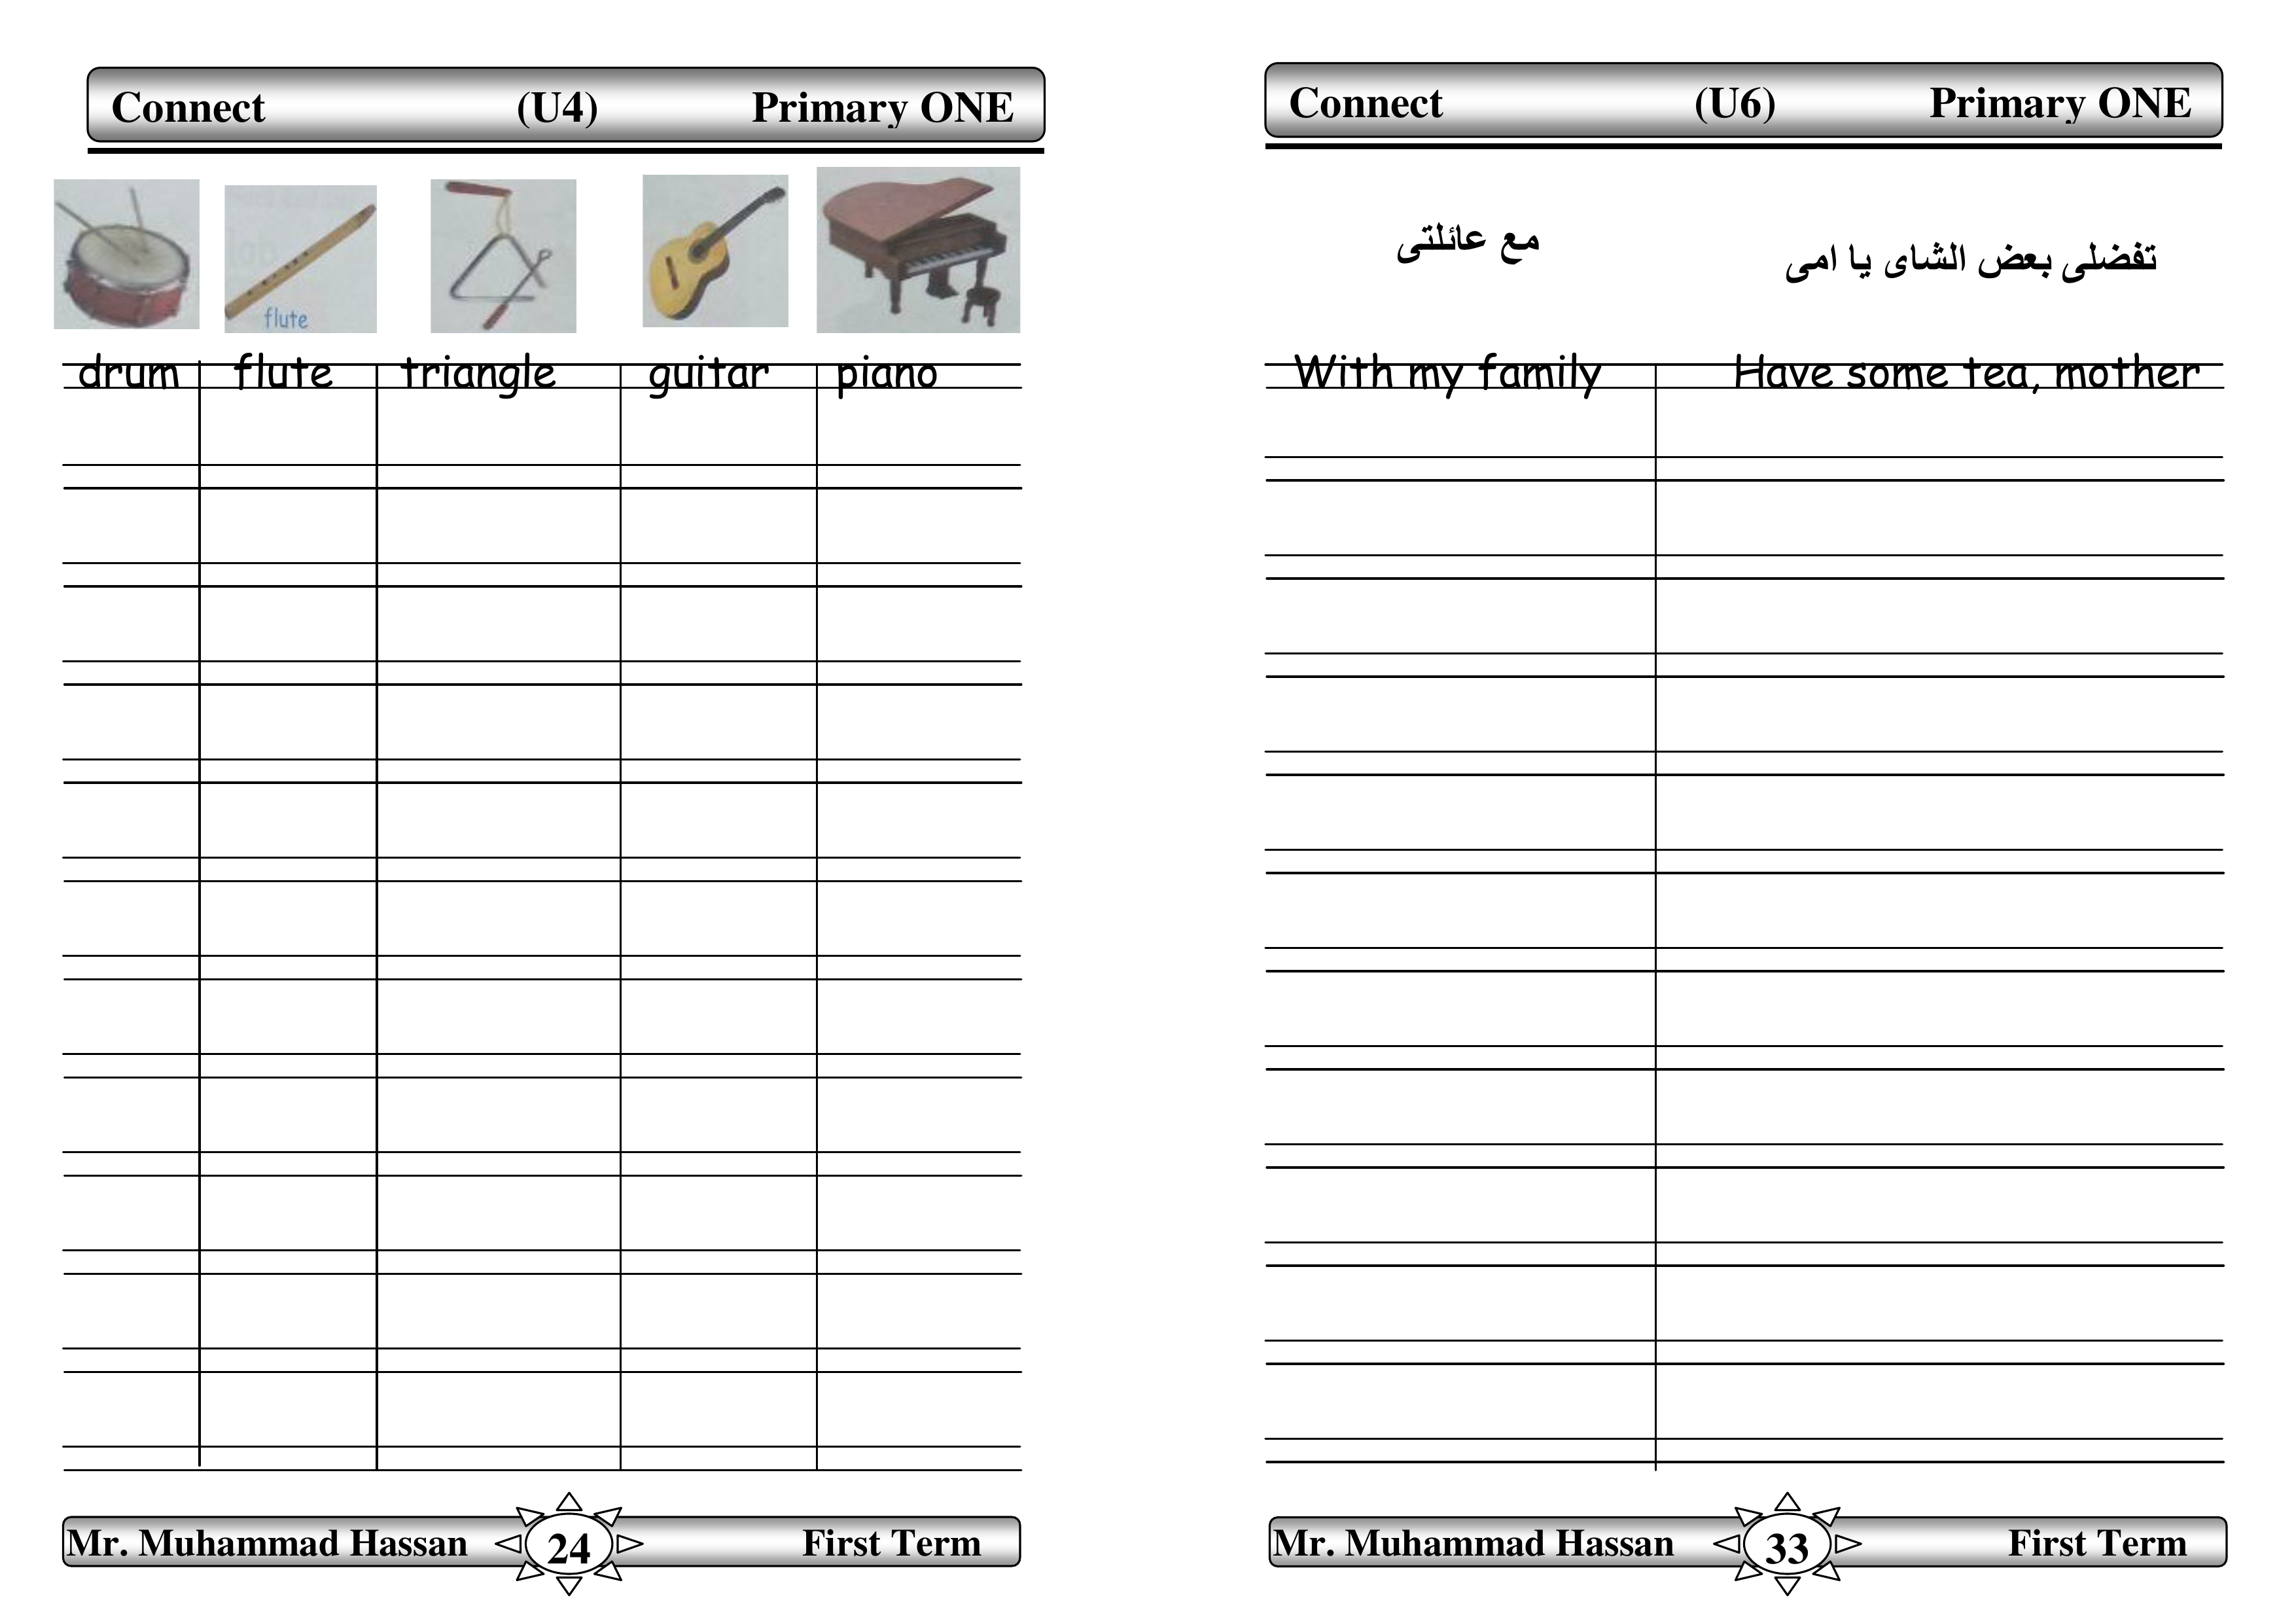 Connect (U4) Primary ONE
flute
drum flute triangle guitar piano
Mr. Muhammad Hassan 24 First Term
Connect (U6) Primary ONE
مع عائلتى
تفضلى بعض الشاى يا امى
With my family Have some tea, mother
Mr. Muhammad Hassan 33 First Term